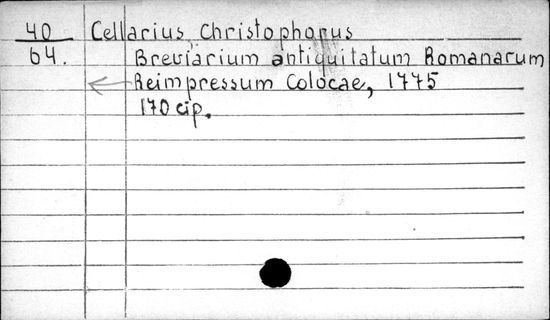 40 Cellarius Christophorus
64. Breviarium antiquitatum Romanarum
Reimpressum Colocae, 1775
170 cip.